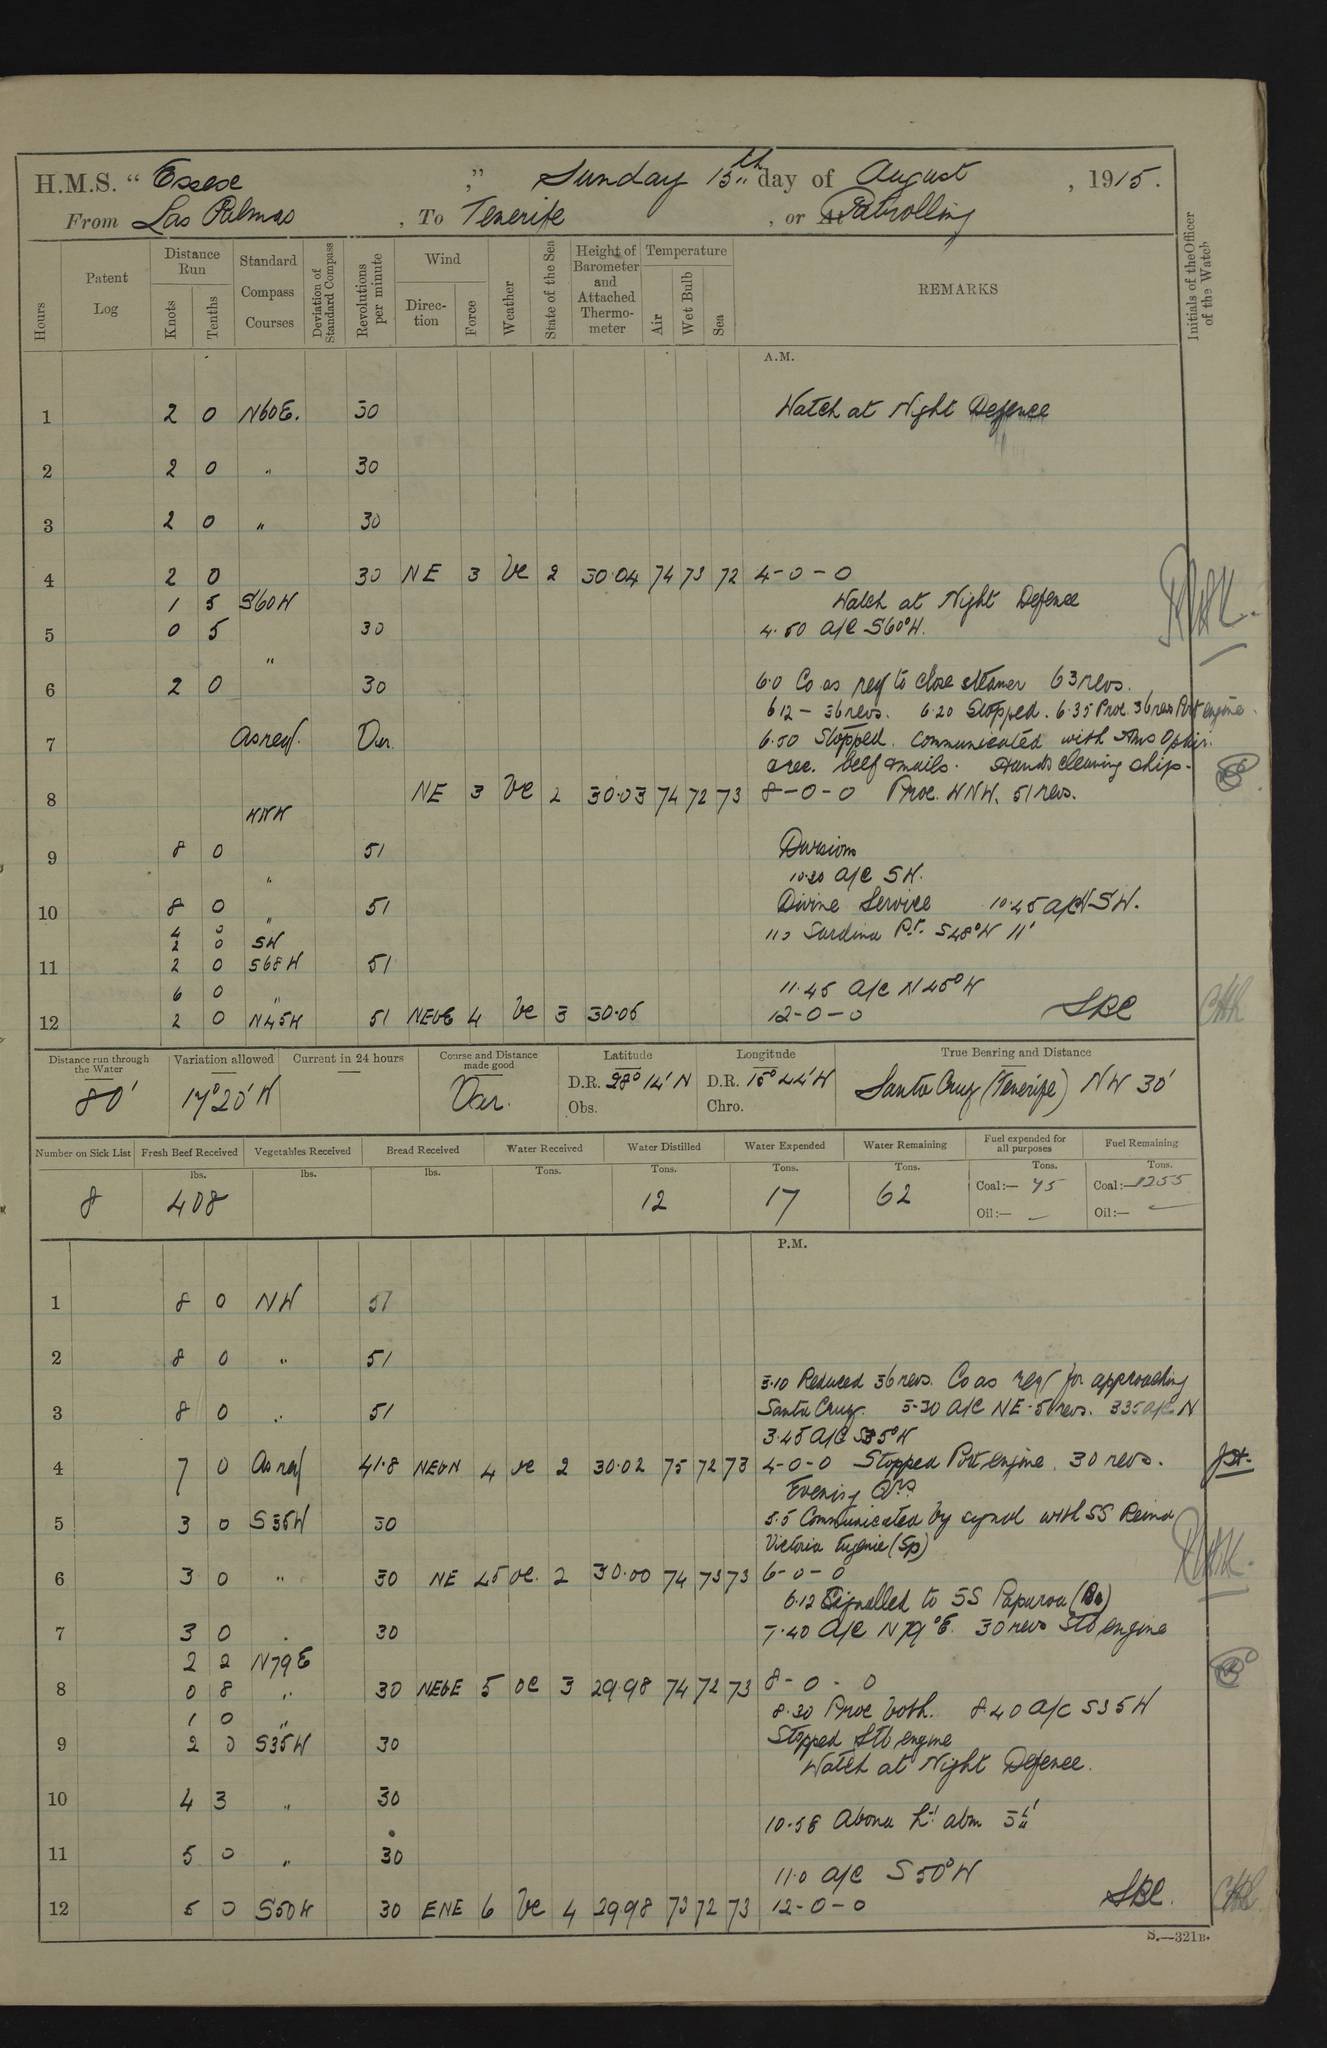 H.M.S. “ Essex ,” Sunday 15th day of August , 1915.
From Las Palmas , To Tenerife , or At Patrolling
Hours
Patent Log
Distance Run
Knots
Tenths
Standard Compass Courses
Deviation of Standard Compass
Revolutions per minute
Wind
Direc- tion
Force
Weather
State of the Sea
Height of Barometer and Attached Thermo- meter
Temperature
Air
Wet Bulb
Sea
REMARKS
Initials of the Officer of the Watch
A.M.
1 2 0 N60E. 30 Watch at Night Defence
2 2 0 " 30
3 2 0 " 30
4 2 0 30 NE 3 bc 2 30.04 74 73 72 4-0-0
1 5 S60W Watch at Night Defence
5 0 5 30 4.50 A/C S60°W.
"
6 2 0 30 6.0 Co as req to close steamer 63 revs.
6 12 - 36 revs. 6.20 Stopped. 6.35 Proc. 36 revs Port engine.
7 As req. Var. 6.50 Stopped. Communicated with HMS Ophir.
& rec. beef & mails. Hands cleaning ship.
8 NE 3 bc 2 30.03 74 72 73 8-0-0 Proc. WNW. 51 revs.
WNW
9 8 0 51 Divisions
" 10.30 A/C SW.
10 8 0 " 51 Divine Service 10.45 A/C WSW.
4 0
2 0 SW 11.0 Sardina Pt. S48°W 11'
11 2 0 S68W 51
6 0 " 11.45 A/C N45°W
12 2 0 N45W 51 NEbE 4 bc 3 30.05 12-0-0 SBC
Distance run through the Water
80'
Variation allowed
17°20'W
Current in 24 hours
Course and Distance made good
Var.
Latitude
D.R. 28° 14' N
Obs.
Longitude
D.R. 15° 44' W
Chro.
True Bearing and Distance
Santa Cruz (Tenerife) NW 30'
Number on Sick List
8
Fresh Beef Received
lbs.
408
Vegetables Received
lbs.
Bread Received
lbs.
Water Received
Tons.
Water Distilled
Tons.
12
Water Expended
Tons.
17
Water Remaining
Tons.
62
Fuel expended for all purposes
Tons.
Coal:— 45
Oil:— —
Fuel Remaining
Tons.
Coal:— 1255
Oil:— —
P.M.
1 8 0 NW 51
2 8 0 " 51
3.10 Reduced 36 revs. Co as req for approaching
3 8 0 " 51 Santa Cruz. 3.30 A/C NE - 51 revs. 3 35 A/C N
3.45 A/C S35°W
4 7 0 As req 41.8 NEbN 4 bc 2 30.02 75 72 73 4-0-0 Stopped Port engine. 30 revs.
Evening Qrs.
5 3 0 S35W 30 5.5 Communicated by signal with SS Reina
Victoria Eugenie (Sp)
6 3 0 " 30 NE 45 bc. 2 30.00 74 73 73 6-0-0
6.12 Signalled to SS Paparoa (Br)
7 3 0 " 30 7.40 A/C N79°E. 30 revs Stb engine
2 2 N79E
8 0 8 " 30 NEbE 5 oc 3 29.98 74 72 73 8-0-0
1 0 " 8.30 Proc both. 8.40 A/C S35W
9 2 0 S35W 30 Stopped Stb engine
Watch at Night Defence.
10 4 3 " 30
10.58 Abona Lt abm
11 5 0 " 30
11.0 A/C S50°W
12 5 0 S50W 30 ENE 6 bc 4 29.98 73 72 73 12-0-0 SBC.
S.—321B.